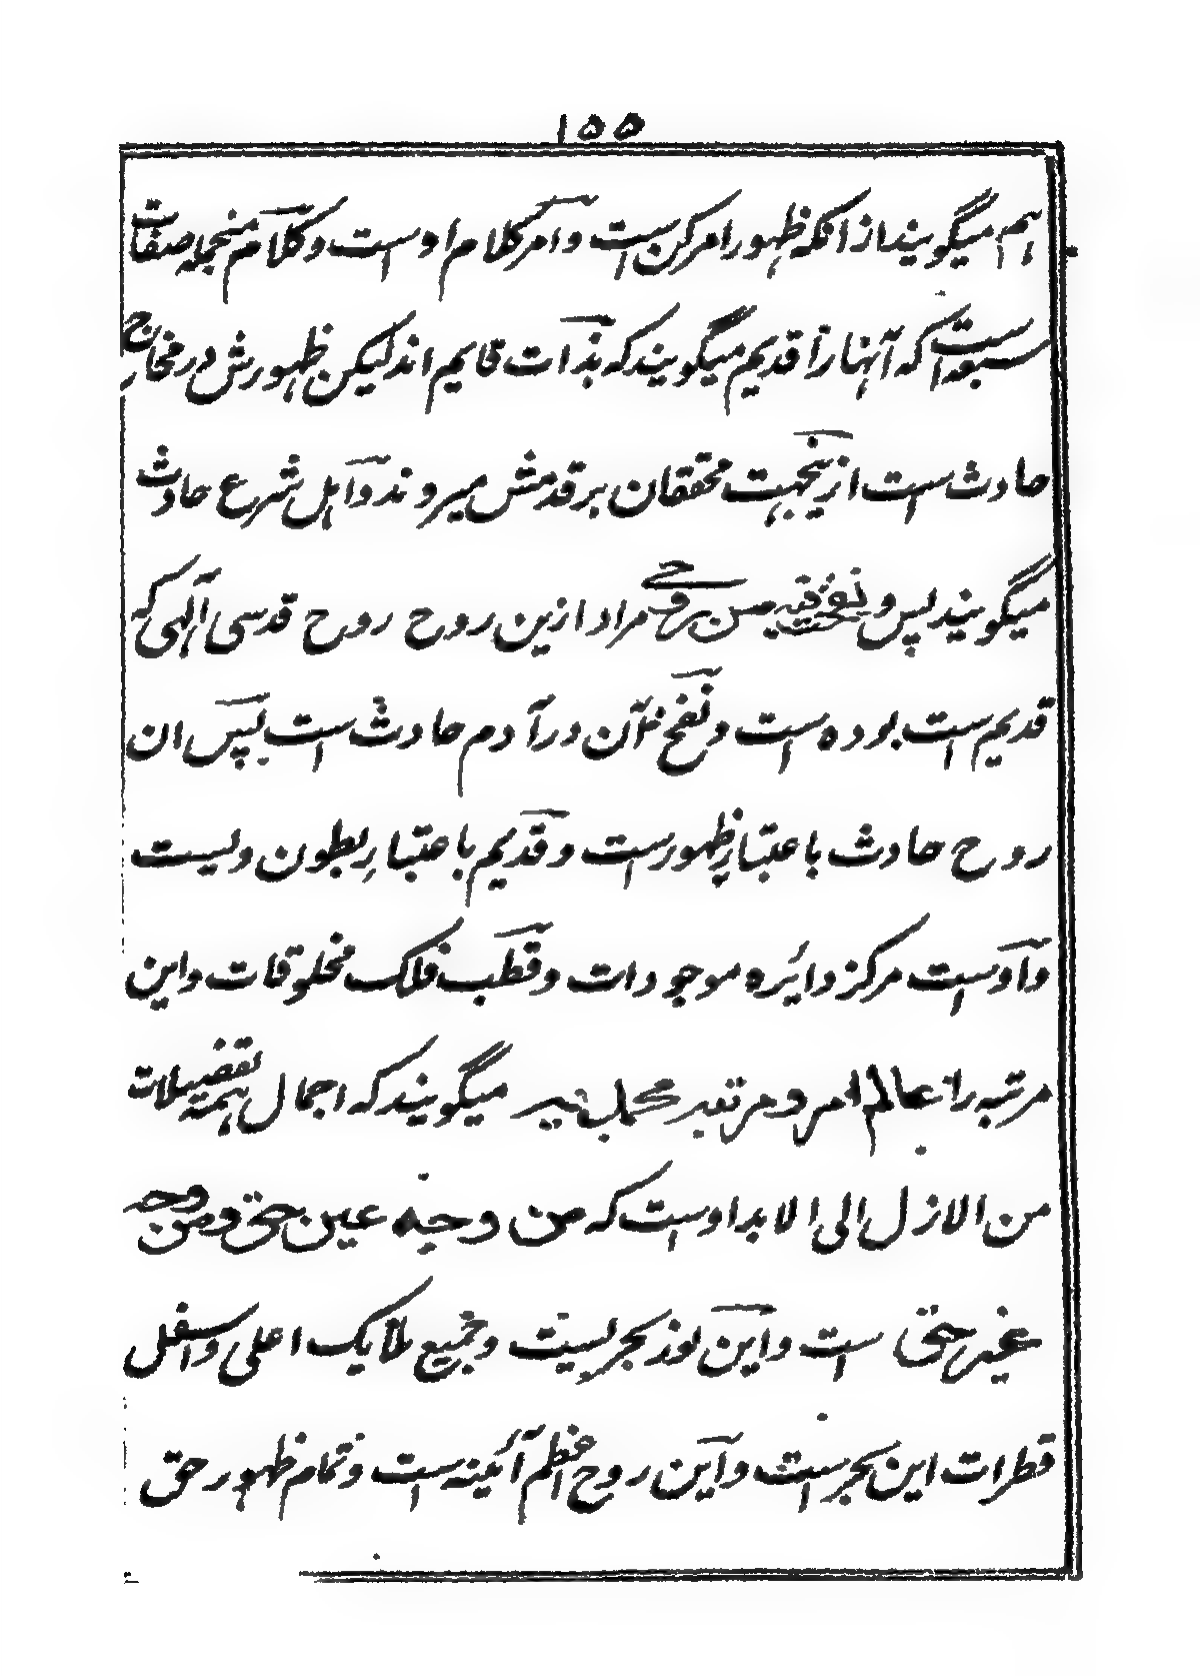 ۱۵۵
هم میگویند از انکه ظهور امر کن است و امر کلام اوست و کلام منجمله صفات
سبعه است که آنها را قدیم میگویند که بذات قایم اند لیکن ظهورش در مخارج
حادث است ازینجهت محققان بر قدمش میروند و اهل شرع حادث
میگویند پس و نفخت فیه من روحی مراد ازین روح روح قدسی الهی که
قدیم است بوده است و نفخ آن در آدم حادث است پس ان
روح حادث باعتبار ظهورست و قدیم باعتبار بطون ویست
و اوست مرکز دایره موجودات و قطب فلک مخلوقات و این
مرتبه را عالم امر و مرتبه میگویند که اجمال همه تفضیلات
من الازل الی الابد اوست که من وجه عین حق و من وجه
غیر حق است و این نور بحریست و جمیع ملایک اعلی و اسفل
قطرات این بحر است و این روح اعظم آئینه است و تمام ظهور حق